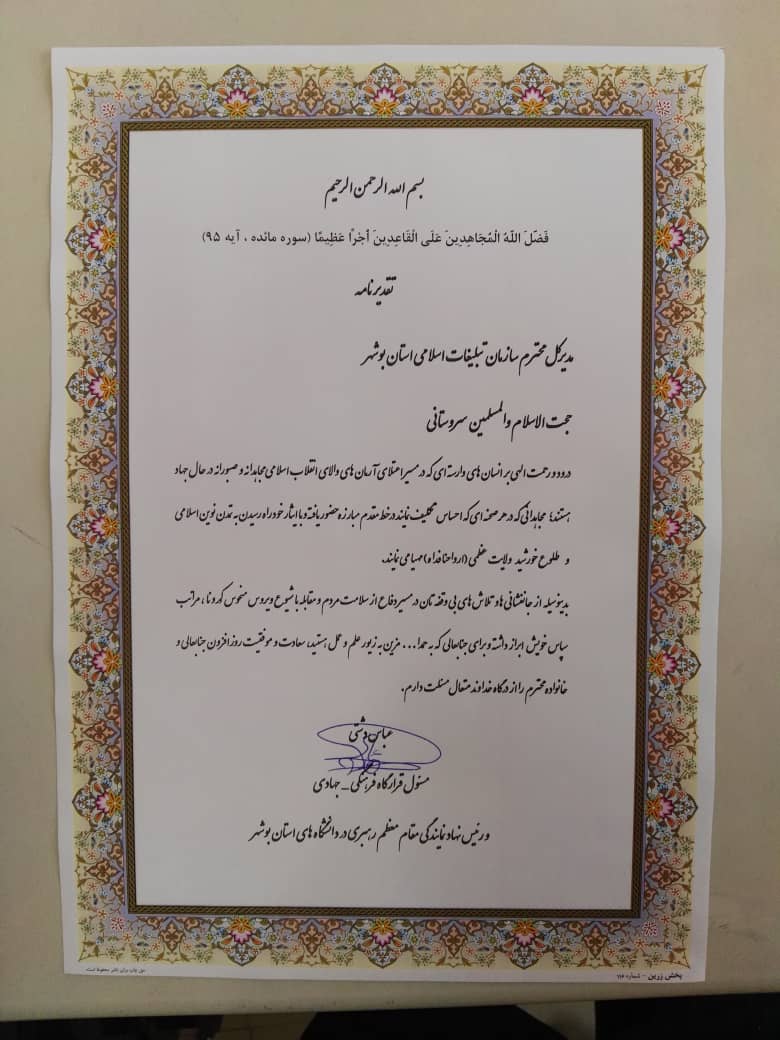 بسم الله الرحمن الرحیم
فَضَّلَ اللَّهُ الْمُجَاهِدِينَ عَلَى الْقَاعِدِينَ أَجْرًا عَظِيمًا (سوره مائده ، آیه ۹۵)
تقدیرنامه
مدیرکل محترم سازمان تبلیغات اسلامی استان بوشهر
حجت الاسلام والمسلمین سروستانی
درود و رحمت الهی بر انسان های وارسته ای که در مسیر اعتلای آرمان های والای انقلاب اسلامی مجاهدانه و صبورانه در حال جهاد
هستند؛ مجاهدانی که در هر صحنه ای که احساس تکلیف نمایند در خط مقدم مبارزه حضور یافته و با ایثار خود راه رسیدن به تمدن نوین اسلامی
و طلوع خورشید ولایت عظمی (ارواحنا فداه) مهیا می نمایند.
بدینوسیله از جانفشانی ها و تلاش های بی وقفه تان در مسیر دفاع از سلامت مردم و مقابله با شیوع ویروس منحوس کرونا ، مراتب
سپاس خویش ابراز داشته و برای جنابعالی که به حمدا... مزین به زیور علم و عمل هستید، سعادت و موفقیت روز افزون جنابعالی و
خانواده محترم را از درگاه خداوند متعال مسئلت دارم.
عباس دشتی
مسئول قرارگاه فرهنگی _ جهادی
و رئیس نهاد نمایندگی مقام معظم رهبری در دانشگاه های استان بوشهر
پخش زرین - شماره ۱۱۶
حق چاپ برای ناشر محفوظ است.